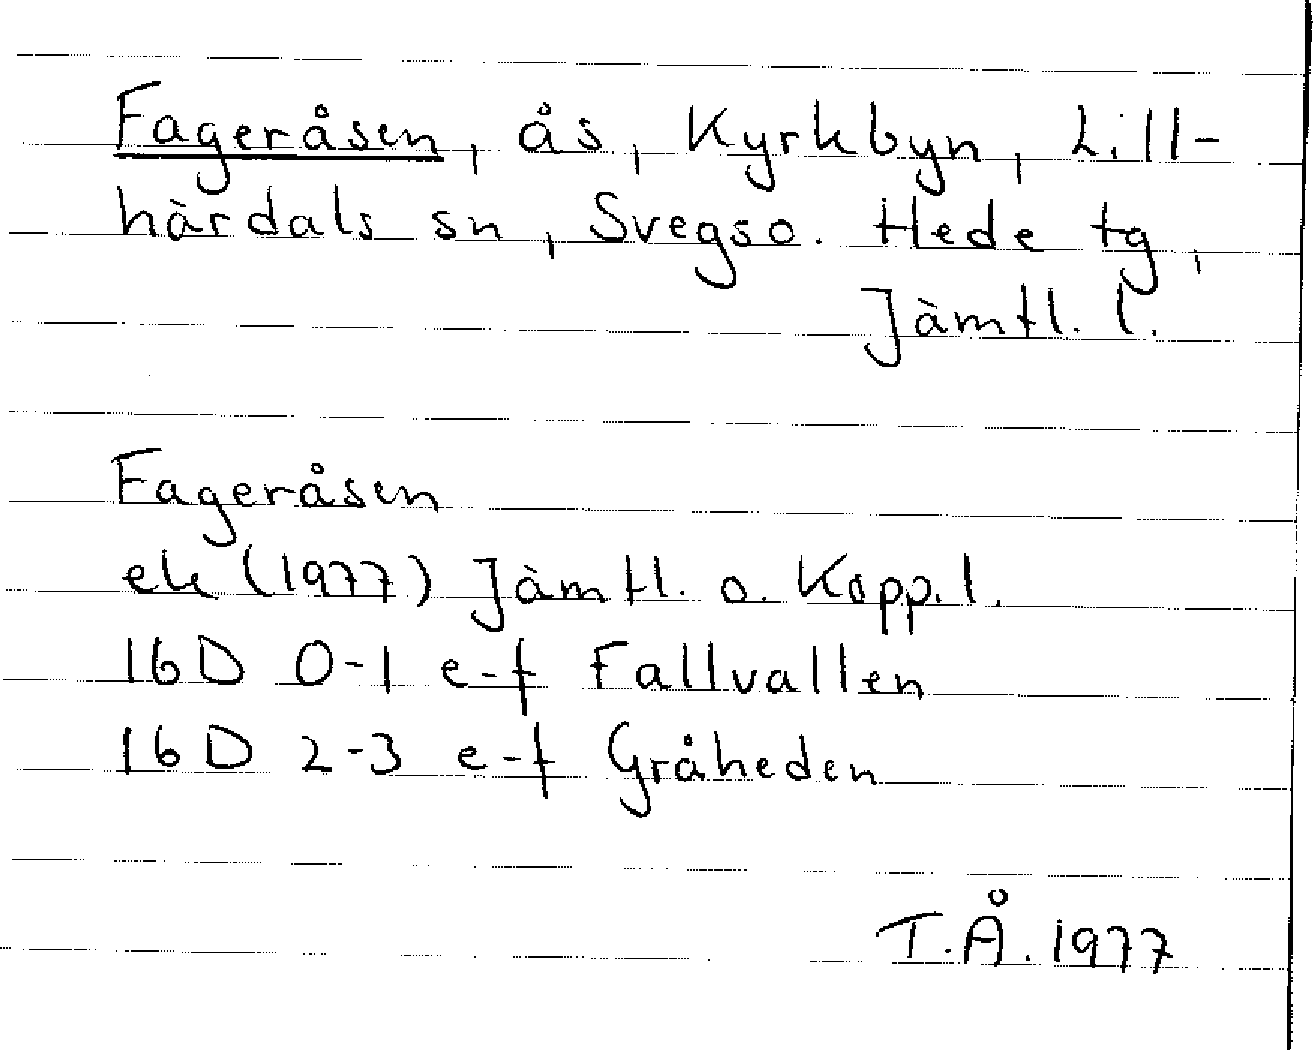 Fageråsen, ås, Kyrkbyn, Lill-
härdals sn, Svegs o. Hede tg,
Jämtl. l.
Fageråsen
ek (1977) Jämtl. o. Kopp. l.
16D 0-1 e-f Fallvallen
16D 2-3 e-f Gråheden
T.Å. 1977